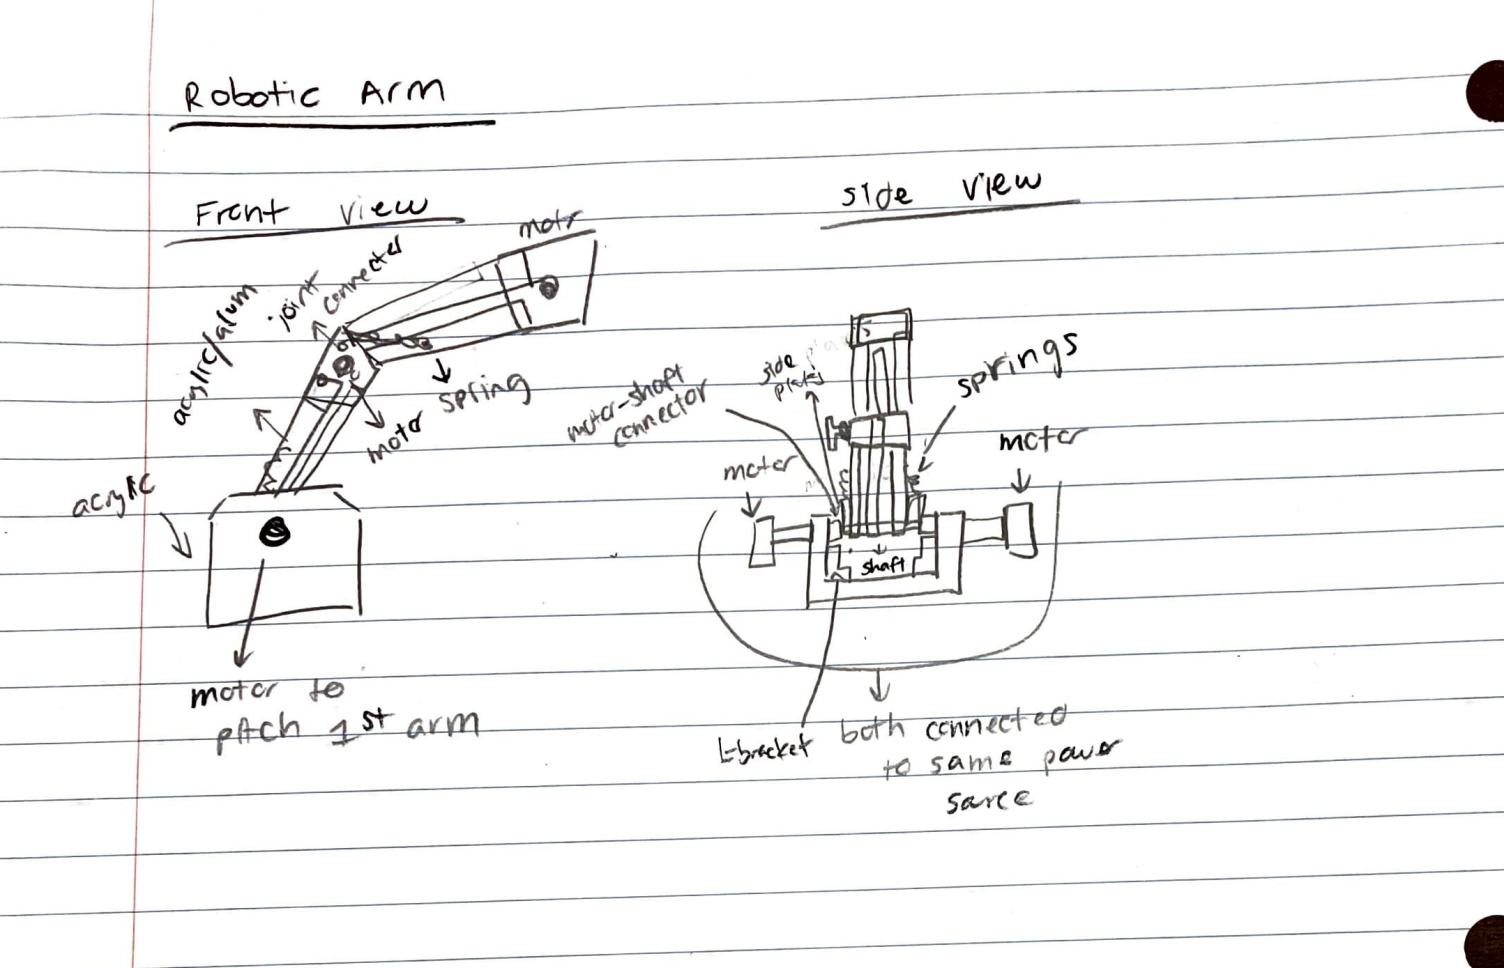 Robotic Arm
Front view
side view
motr
joint
connecter
acylric/alum
spring
motor
acrylic
motor to
pitch 1st arm
side
plates
motor-shaft
connector
springs
motor
motor
shaft
L-bracket
both connected
to same power
sarce